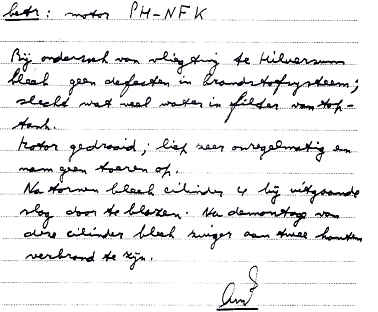 betr: motor PH-NFK
Bij onderzoek van vliegtuig te Hilversum
bleek geen defecten in brandstofsysteem;
slechts wat veel water in filter van top-
tank.
Motor gedraaid; liep zeer onregelmatig en
nam geen toeren op.
Na tornen bleek cilinder 4 bij uitgaande
slag door te blazen. Na demontage van
deze cilinder bleek zuiger aan twee kanten
verbrand te zijn.